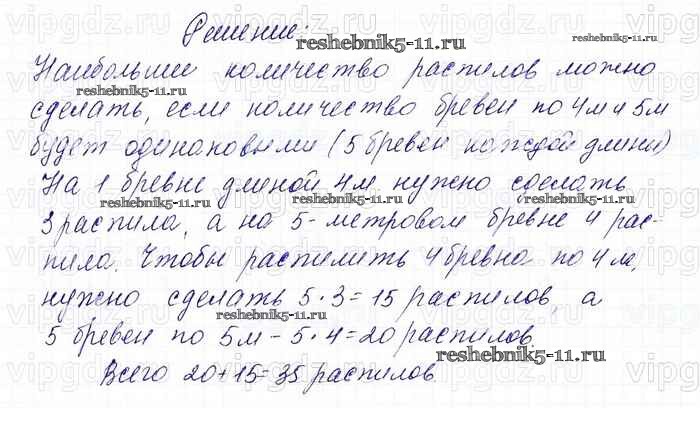 Решение:
Наибольшее количество распилов можно
сделать, если количество бревен по 4м и 5м
будет одинаковыми (5 бревен каждой длины)
На 1 бревне длиной 4м нужно сделать
3 распила, а на 5-метровом бревне 4 рас-
пила. Чтобы распилить 4 бревна по 4 м,
нужно сделать 5·3=15 распилов, а
5 бревен по 5м – 5·4=20 распилов.
Всего 20+15=35 распилов
reshebnik5-11.ru
reshebnik5-11.ru
reshebnik5-11.ru
reshebnik5-11.ru
reshebnik5-11.ru
reshebnik5-11.ru
reshebnik5-11.ru
vipgdz.ru